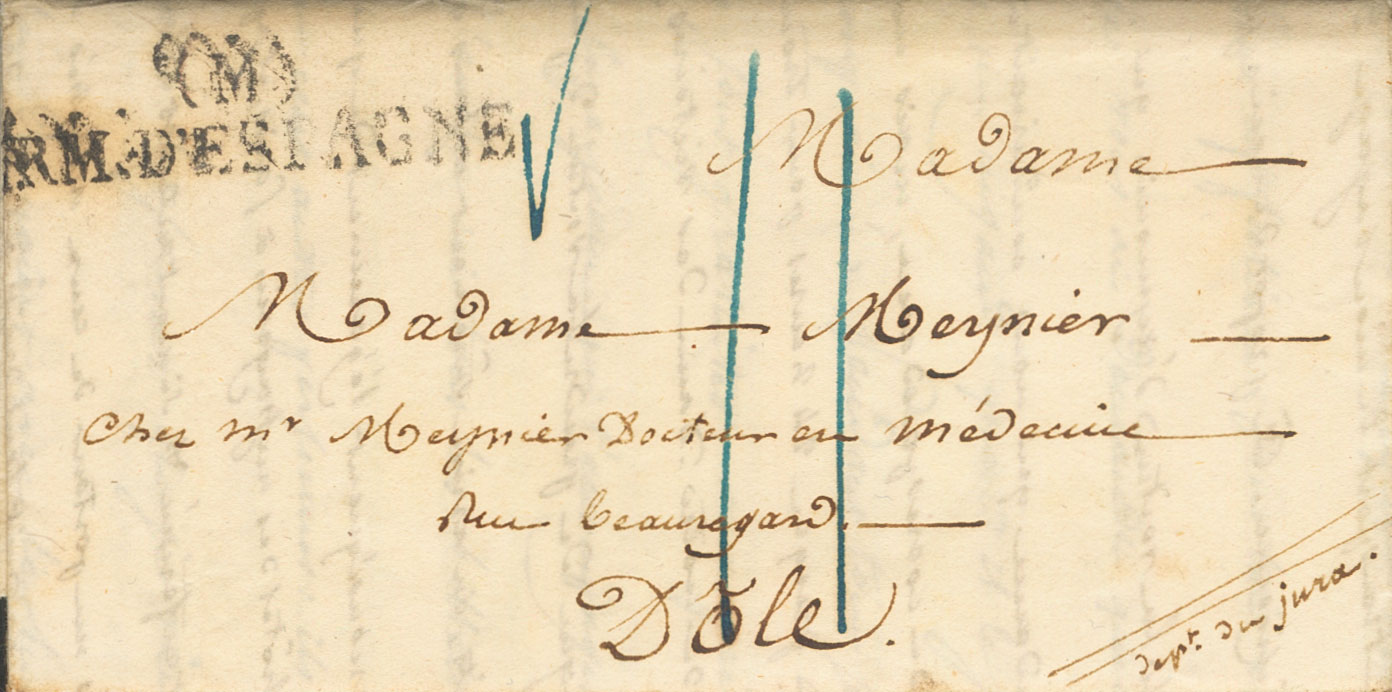 (M)
ARM. D'ESPAGNE
Madame
Madame Meynier
chez mr Meynier Docteur en médecine
Rue beauregard.
Dôle.
dept. du jura.